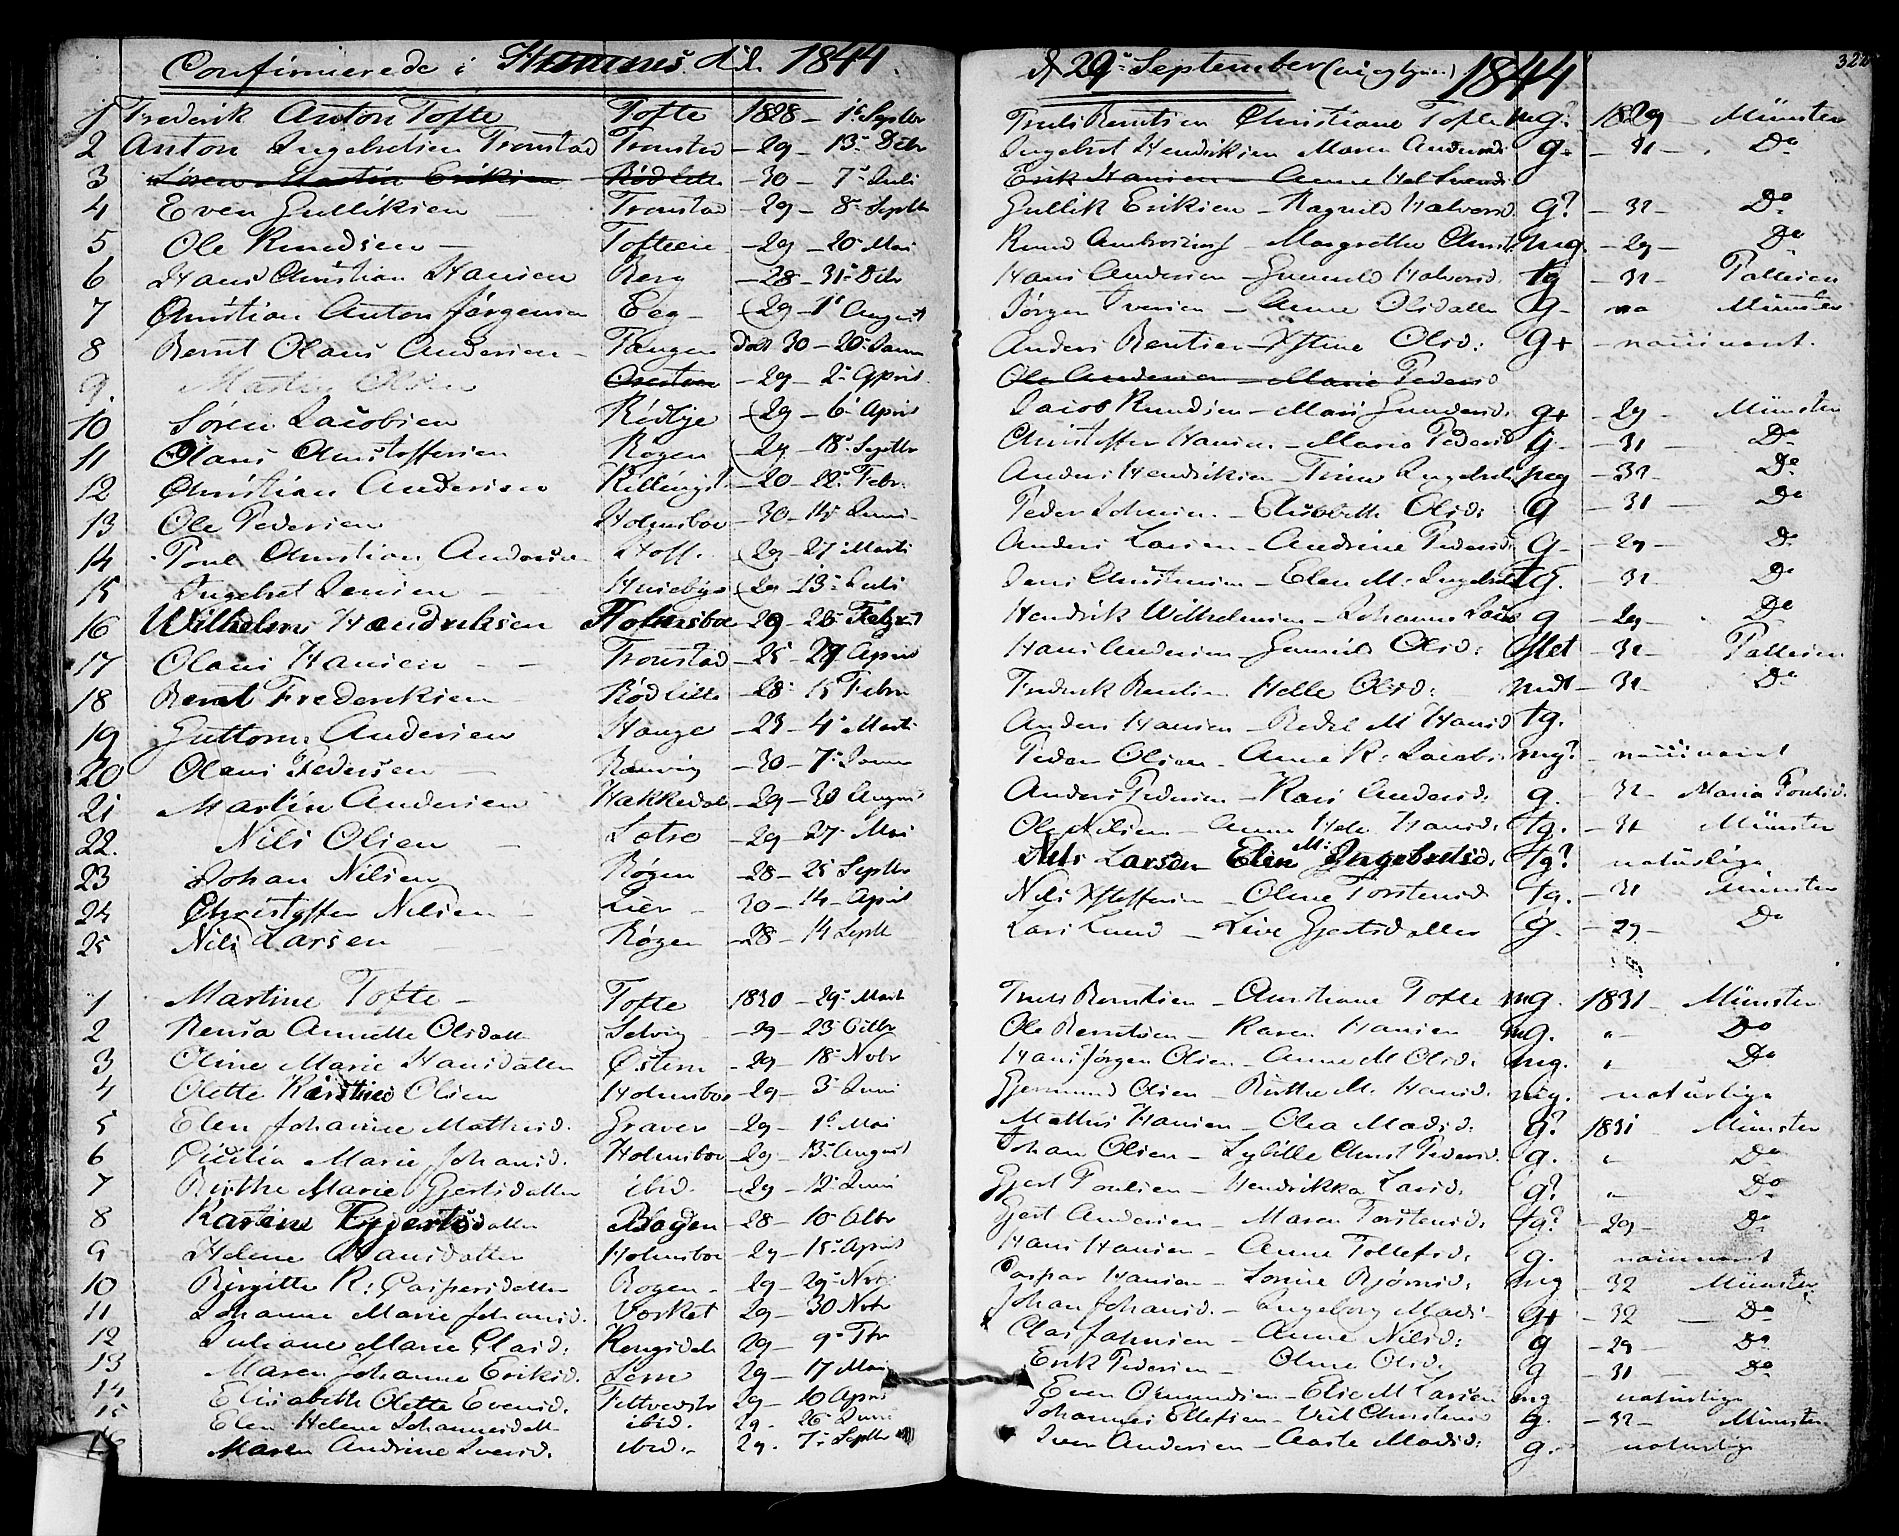 Confirmerede i Hurums 1844 d 29 September 1844 322
1 Frederik Anton Tofte Tofte 1828 - 1e Septbr Truls Berntsen Christiane Tofte mg? 1829 - Münster
2 Anton Ingebretsen Tronstad Tronstad - 29 - 13 - Debr Ingebret Hendriksen Maren Andersd g - 31 - Do
3 Søren Martin Eriksen Rødlille - 30 - 7 - Juli Erik Hansen - Anne Hel Svendsd
4 Even Gulliksen Tronstad - 29 - 8 - Septbr Gullik Eriksen - Ragnild Halvorsd g? - 32 - Do
5 Ole Knudsen - Tofteeie - 29 - 20 - Mai Knud - Margrethe Christ mg. - 29 - Do
6 Hans Christian Hansen Berg - 28 - 31 - Debr Hans Andersen - Gunnild Halvorsd. tg - 32 - Pallesen
7 Christian Anton Jørgensen Eeg - 29 - 1e August Jørgen Iversen - Anne Olsdatter g - na Münster
8 Bernt Olaus Andersen - Tangen Døbt 30 - 20 - Janr Anders Berntsen - Xstine Olsd: g+
9. Martin Olsen - 29 - 2 - April Ole Andersen - Marie Pedersd
10 Søren Jacobsen Rødbye - 29 - 6 - April Jacob Knudsen - Mari Gundersd. g+ - 29 - Münster
11 Olaus Christoffersen Rogen 29 - 18 - Septbr Christoffer Hansen - Maria Pedersd g. - 31 - Do
12 Christian Andersen - 22 - Febr. Anders Hendriksen - Trine Ingebrets meg - 32 - Do
13 Ole Pedersen Holmsboe - 30 - 14 Juni Peder Johnsen - Elisabeth Olsd: g - 31 - Do
14 Poul Christian Andersen Hoff. 29 - 27 - Marts Anders Larsen - Andrine Pedersd g - 29 - Do
15 Ingebret Jensen - Husebye 29 - 13 - Juli Jens Christensen - Elen M: Ingebret tg. - 32 - Do
16 Wilhelm Hendriksen Holmsboe 29 - 28 Hendrik Wilhelmsen - Johanne Jacob g - 29 - Do
17 Olaus Hansen - Tronstad - 25 - 29 April Hans Andersen - Gunild Olsd: - 32 - Pallesen
18 Bernt Frederiksen Rødlille - 28 - 15 Febr Frederik Berntsen Helle Olsd: mdt - 32 - Do
19 Guttorm Andersen Hauge - 29 - 4 - Marts Anders Hansen - M Hansd tg.
20 Olaus Pedersen - - 30 - 7 - Janr Peder Olsen - Anne K: Jacobs mg?
21 Martin Andersen Hakkedal - 29 - 30 August Anders Pedersen - Kari Andersd. g. - 32 - Maria Poulsd.
22. Nils Olsen - - 29 - 27 - Mai Ole Nilsen - Anne Hele Hansd. tg. - 31 Münster
23 Johan Nilsen Røgen - 28 - 25 Septbr Nils Larsen Elen M: Ingebretsd. tg? naturlige
24 Christoffer Nilsen - Lier - 30 - 14 - April Nils Xstoffersen - Oline Torstensd tg. - 31 Münster
25 Nils Larsen - Røgen - 28 - 14 Septb Lars Lund - Live Gjertsdatter g. - 29 - Do
1 Martine Tofte - Tofte 1830 - 29 - Marts Truls Berntsen - Christiane Tofte mg. 1831 - Münster
2 Rensa Annette Olsdatt Selvig - 29 - 23 - Olbr Ole Berntsen - Karen Hansen mg. " - Do
3 Oline Marie Hansdatter Østern - 29 - 18 - Nobr Hans Jørgen Olsen - Anne M Olsd. mg. " Do
4 Olette Kirstine Olsen Holmsboe 29 - 3 - Juni Gjermund Olsen - Birthe M. Hansd. mg. naturlige
5 Elen Johanne Mathisd. Graver - 29 - 1e Mai Mathis Hansen - Olea Madsd. g? 1831 Münster
6 Cicilia Marie Johansd. Holmsboe - 29 - 13 - August Johan Olsen - Sybille Christ Pedersd. g. " Do
7 Birthe Marie Gjertsdatter ibid. - 29 - 12 - Juni Gjert Poulsen - Hendrikka Larsd. g? " Do
8 Karine Gjertsdatter - 28 - 10 - Olbr Gjert Andersen - Maren Torstensd. tg? - 29 - Do
9 Helene Hansdatter Holmsboe - 29 - 15 - April Hans Hansen - Anne Tollefsd. g.
10 Birgitte K: Caspersdatter Rogen - 29 - 29 - Nobr Caspar Hansen - Lorine Bjørnsd. mg - 32 Münster
11 Johanne Marie Johansd. 29 - 30 Nobr Johan Johansd. - Ingeborg Mads g+ - 32 - Do
12 Juliane Marie Clasd: 29 - 9 - Clas Johnsen - Anne Nilsd: g - 29 - Do
13 Maren Johanne Eriksd. Sem 29 - 17 Mai Erik Pedersen - Oline Olsd. g - 31 - Do
14 Elisabeth Olette Evensd. 29 - 10 April Even - Elie M Larsen mg naturlige
15 Elen Helene Johannesdatt ibid. 29 - 26 - Juni Johannes Ellefsen - Christensd tg. - 32 - Münster
16 Maren Andrine Iversd. ibid. 29. 7 - Septbr Iver Andersen - Aaste Madsd: g. - naturlige